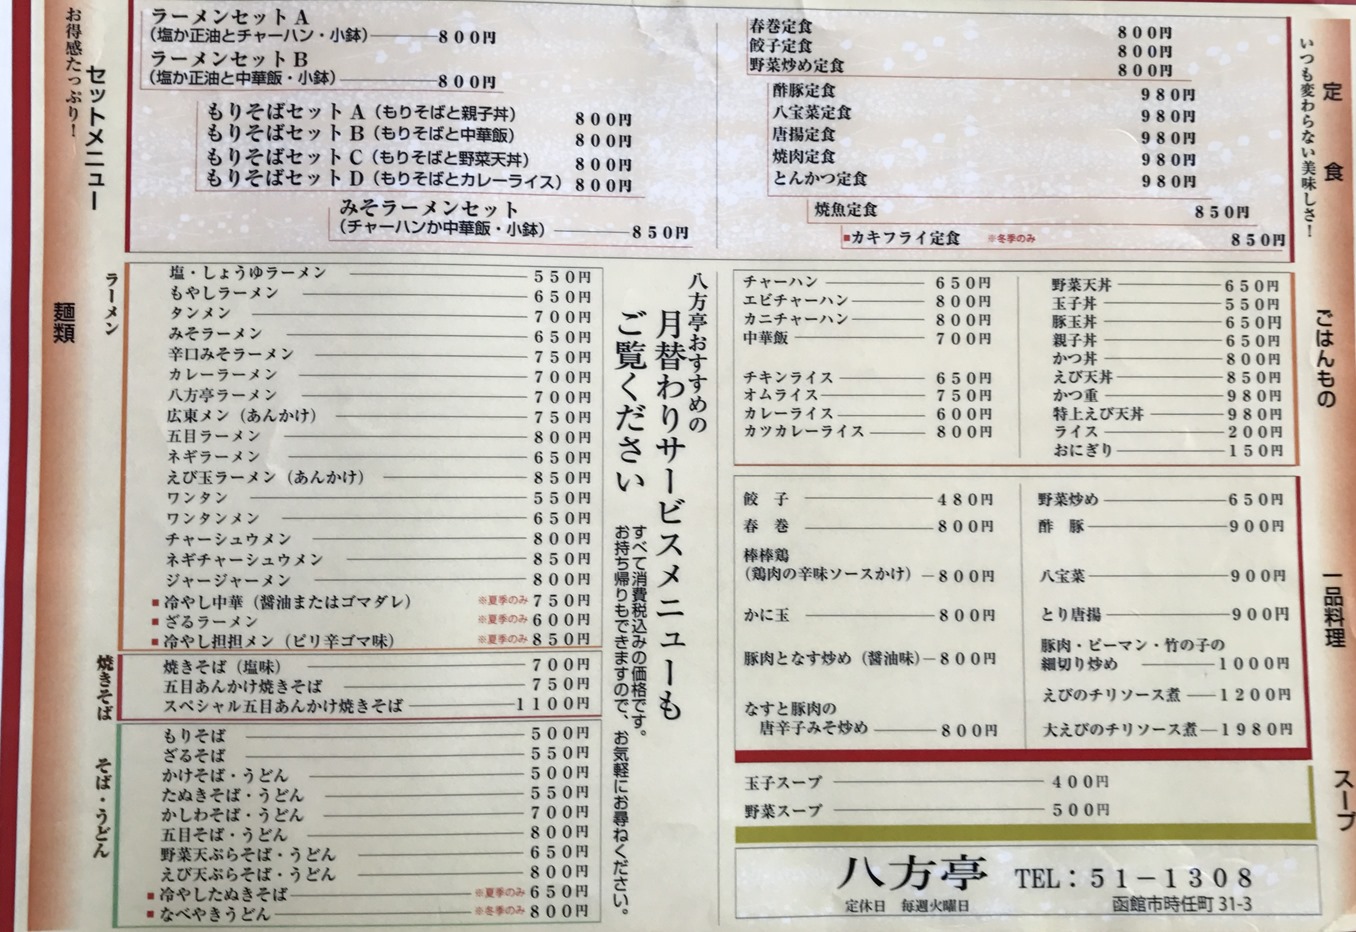 お得感たっぷり！
セットメニュー
ラーメンセット A
（塩か正油とチャーハン・小鉢） 800円
ラーメンセット B
（塩か正油と中華飯・小鉢） 800円
もりそばセット A（もりそばと親子丼） 800円
もりそばセット B（もりそばと中華飯） 800円
もりそばセット C（もりそばと野菜天丼） 800円
もりそばセット D（もりそばとカレーライス） 800円
みそラーメンセット
（チャーハンか中華飯・小鉢） 850円
いつも変わらない美味しさ！
定食
春巻定食 800円
餃子定食 800円
野菜炒め定食 800円
酢豚定食 980円
八宝菜定食 980円
唐揚定食 980円
焼肉定食 980円
とんかつ定食 980円
焼魚定食 850円
■カキフライ定食 ※冬季のみ 850円
麺類
ラーメン
塩・しょうゆラーメン 550円
もやしラーメン 650円
タンメン 700円
みそラーメン 650円
辛口みそラーメン 750円
カレーラーメン 700円
八方亭ラーメン 700円
広東メン（あんかけ） 750円
五目ラーメン 800円
ネギラーメン 650円
えび玉ラーメン（あんかけ） 850円
ワンタン 550円
ワンタンメン 650円
チャーシュウメン 800円
ネギチャーシュウメン 850円
ジャージャーメン 800円
■冷やし中華（醤油またはゴマダレ） ※夏季のみ 750円
■ざるラーメン ※夏季のみ 600円
■冷やし担担メン（ピリ辛ゴマ味） ※夏季のみ 850円
焼きそば
焼きそば（塩味） 700円
五目あんかけ焼きそば 750円
スペシャル五目あんかけ焼きそば 1100円
そば・うどん
もりそば 500円
ざるそば 550円
かけそば・うどん 500円
たぬきそば・うどん 550円
かしわそば・うどん 700円
五目そば・うどん 800円
野菜天ぷらそば・うどん 650円
えび天ぷらそば・うどん 800円
■冷やしたぬきそば ※夏季のみ 650円
■なべやきうどん ※冬季のみ 800円
八方亭おすすめの
月替わりサービスメニューも
ご覧ください
すべて消費税込みの価格です。
お持ち帰りもできますので、お気軽にお尋ねください。
ごはんもの
チャーハン 650円
エビチャーハン 800円
カニチャーハン 800円
中華飯 700円
チキンライス 650円
オムライス 750円
カレーライス 600円
カツカレーライス 800円
野菜天丼 650円
玉子丼 550円
豚玉丼 650円
親子丼 650円
かつ丼 800円
えび天丼 850円
かつ重 980円
特上えび天丼 980円
ライス 200円
おにぎり 150円
一品料理
餃子 480円
春巻 800円
棒棒鶏
（鶏肉の辛味ソースかけ） 800円
かに玉 800円
豚肉となす炒め（醤油味） 800円
なすと豚肉の
唐辛子みそ炒め 800円
野菜炒め 650円
酢豚 900円
八宝菜 900円
とり唐揚 900円
豚肉・ピーマン・竹の子の
細切り炒め 1000円
えびのチリソース煮 1200円
大えびのチリソース煮 1980円
スープ
玉子スープ 400円
野菜スープ 500円
八方亭 TEL：51－1308
定休日 毎週火曜日 函館市時任町 31-3